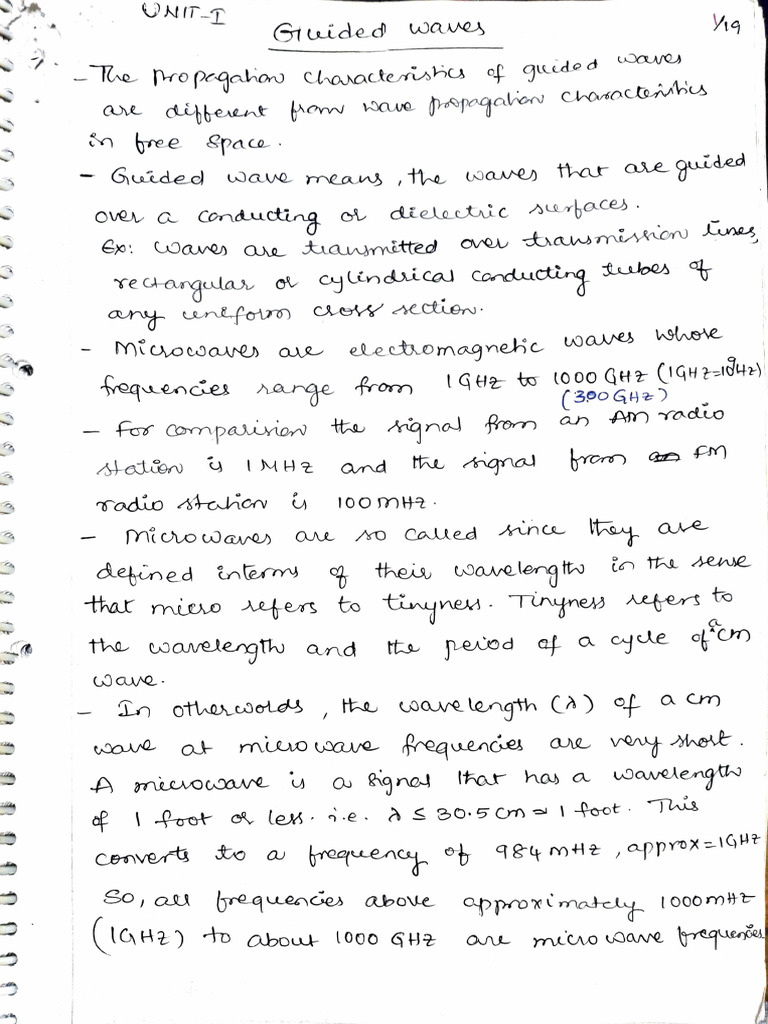 UNIT-I
Guided waves
1/19
- The propagation characteristics of guided waves
are different from wave propagation characteristics
in free space.
- Guided wave means, the waves that are guided
over a conducting or dielectric surfaces.
Ex: Waves are transmitted over transmission lines,
rectangular or cylindrical conducting tubes of
any uniform cross section.
- Microwaves are electromagnetic waves whose
frequencies range from 1GHz to 1000 GHz (1GHz=10⁹Hz)
(300GHz)
- For comparision the signal from an AM radio
station is 1MHz and the signal from an FM
radio station is 100MHz.
- Microwaves are so called since they are
defined interms of their wavelength in the sense
that micro refers to tinyness. Tinyness refers to
the wavelength and the period of a cycle of a cm
wave.
- In otherwords, the wavelength (λ) of a cm
wave at microwave frequencies are very short.
A microwave is a signal that has a wavelength
of 1 foot or less. i.e. λ ≤ 30.5cm = 1 foot. This
converts to a frequency of 984 MHz, approx=1GHz
So, all frequencies above approximately 1000MHz
(1GHz) to about 1000 GHz are microwave frequencies